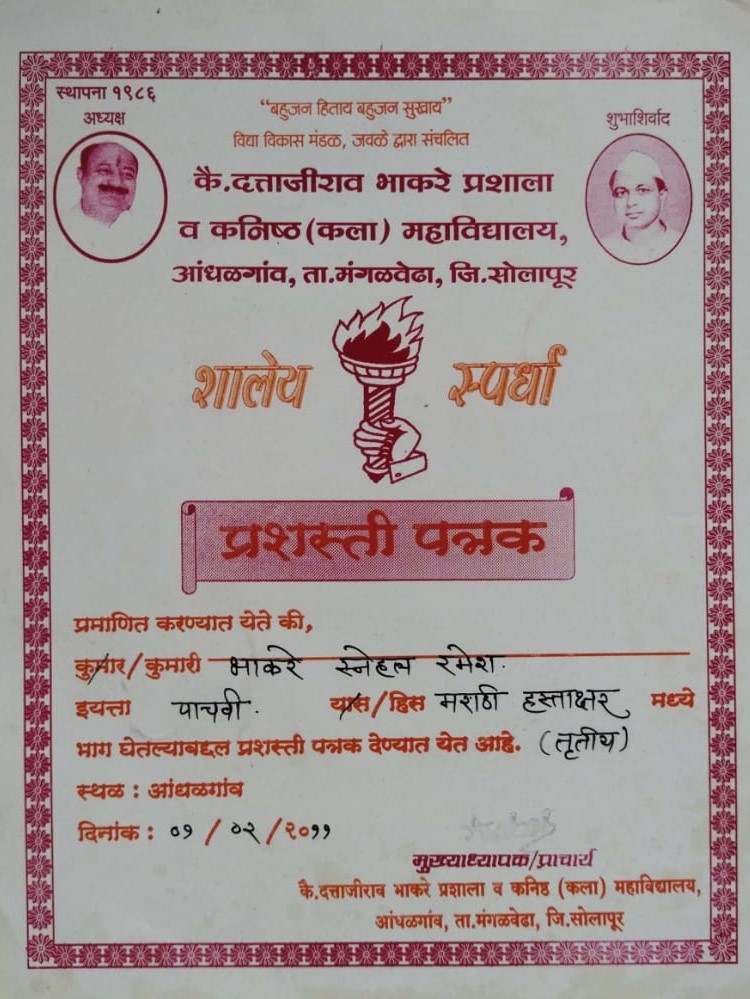 स्थापना १९८६
अध्यक्ष
"बहुजन हिताय बहुजन सुखाय"
शुभाशिर्वाद
विद्या विकास मंडळ, जवळे द्वारा संचलित
कै.दत्ताजीराव भाकरे प्रशाला
व कनिष्ठ(कला) महाविद्यालय,
आंधळगांव, ता.मंगळवेढा, जि.सोलापूर
शालेय स्पर्धा
प्रशस्ती पत्रक
प्रमाणित करण्यात येते की,
कुमार/कुमारी भाकरे स्नेहल रमेश.
इयत्ता पाचवी. यास/हिस मराठी हस्ताक्षर मध्ये
भाग घेतल्याबद्दल प्रशस्ती पत्रक देण्यात येत आहे. (तृतीय)
स्थळ : आंधळगांव
दिनांक : ०१ / ०२ /२०११
मुख्याध्यापक/प्राचार्य
कै.दत्ताजीराव भाकरे प्रशाला व कनिष्ठ (कला) महाविद्यालय,
आंधळगांव, ता.मंगळवेढा, जि.सोलापूर